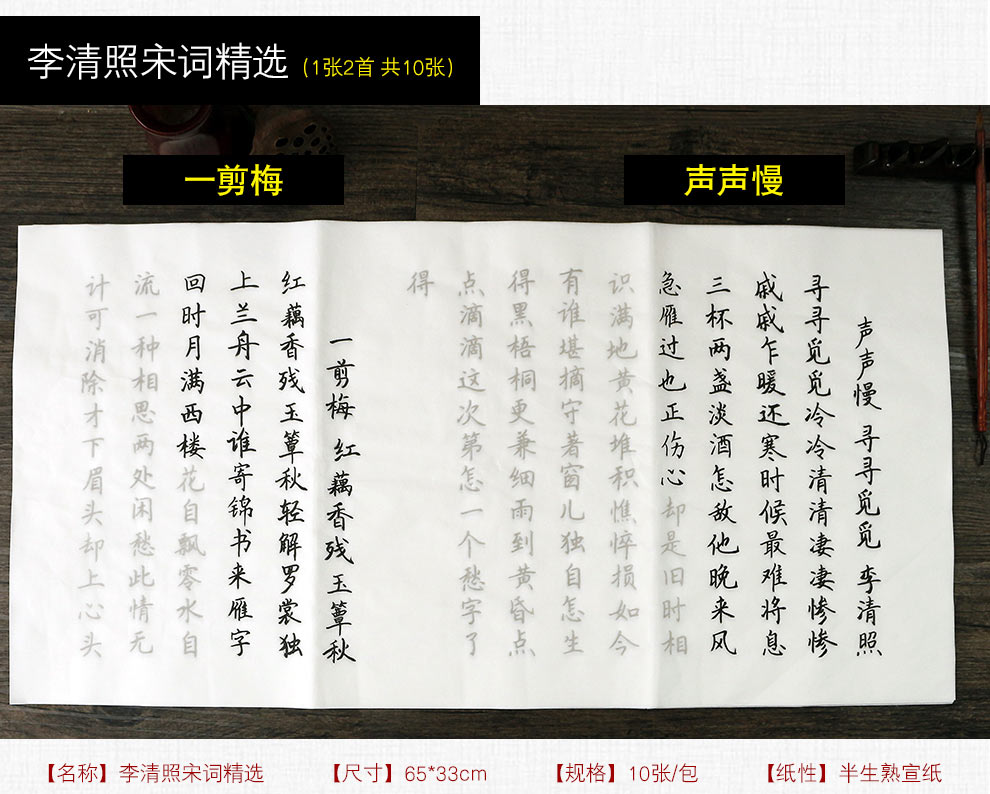 李清照宋词精选（1张2首 共10张）
一剪梅
声声慢
声声慢 寻寻觅觅 李清照
寻寻觅觅冷冷清清凄凄惨惨
戚戚乍暖还寒时候最难将息
三杯两盏淡酒怎敌他晚来风
急雁过也正伤心却是旧时相
识满地黄花堆积憔悴损如今
有谁堪摘守著窗儿独自怎生
得黑梧桐更兼细雨到黄昏点
点滴滴这次第怎一个愁字了
得
一剪梅 红藕香残玉簟秋
红藕香残玉簟秋轻解罗裳独
上兰舟云中谁寄锦书来雁字
回时月满西楼花自飘零水自
流一种相思两处闲愁此情无
计可消除才下眉头却上心头
【名称】李清照宋词精选
【尺寸】65*33cm
【规格】10张/包
【纸性】半生熟宣纸